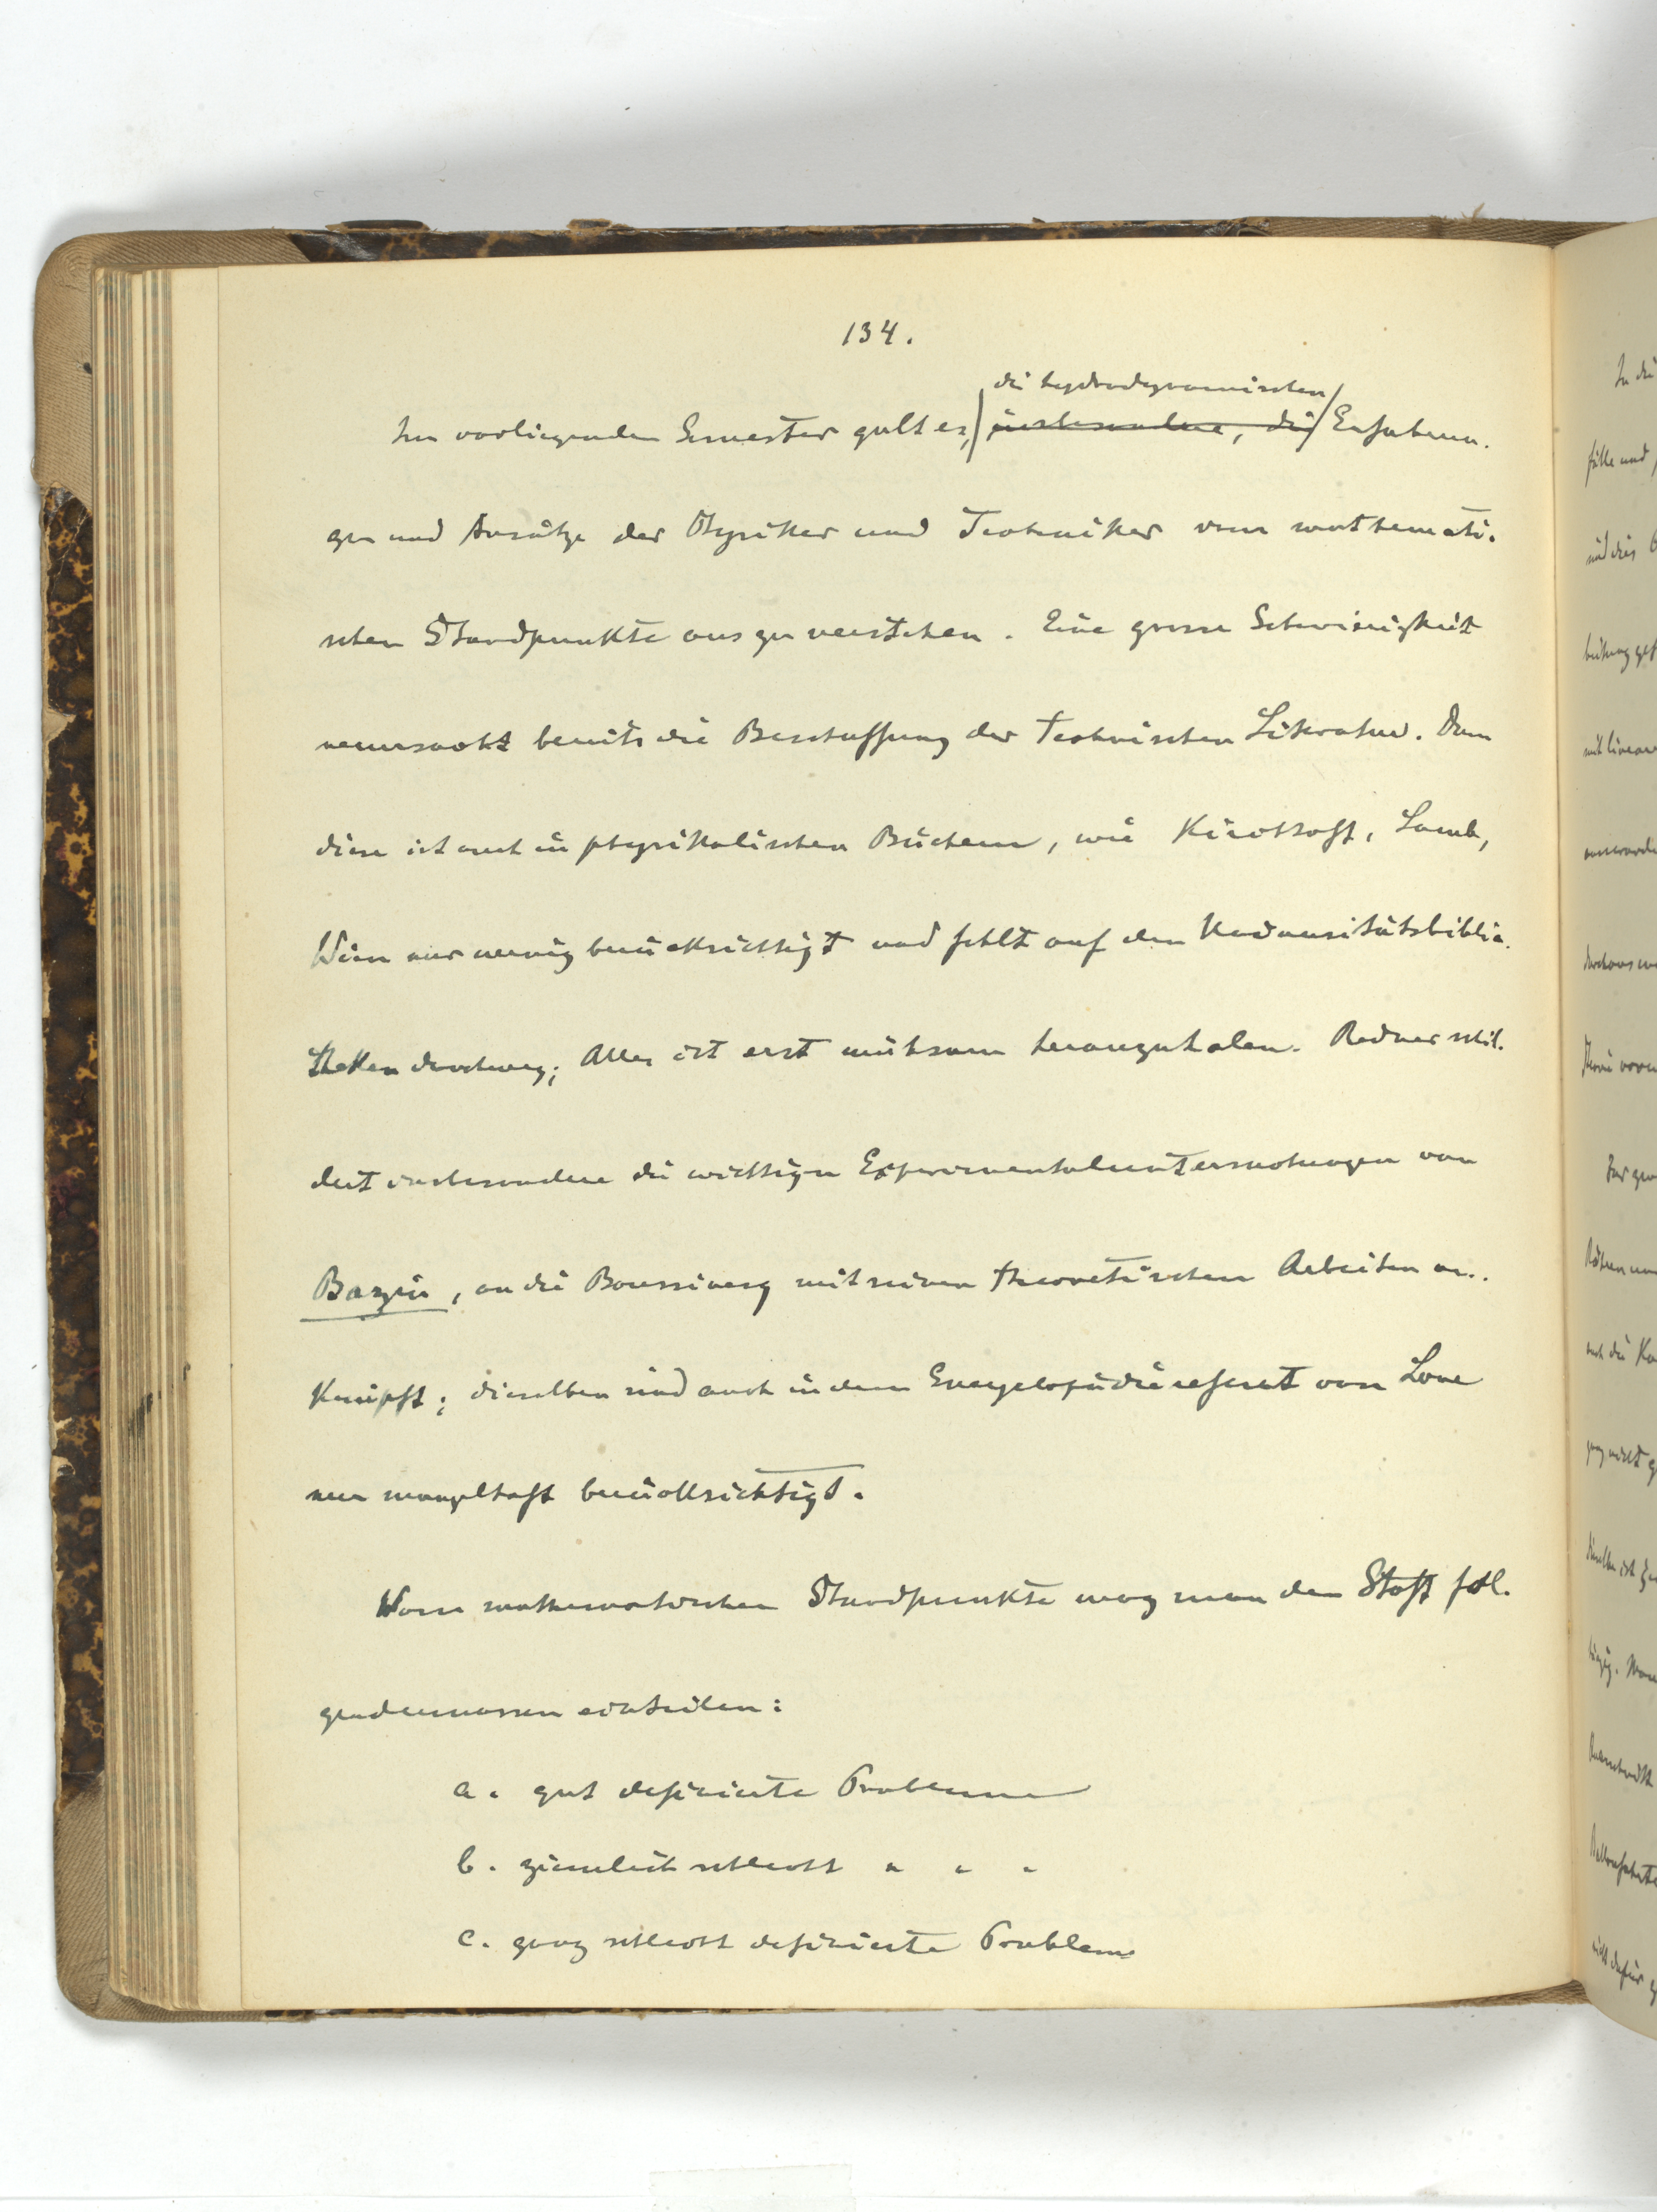 134.
die hydrodynamischen
Im vorliegenden Semester galt es, insbesondere, die Erfahrun-
gen und Ansätze der Physiker und Techniker vom mathemati-
schen Standpunkte aus zu verstehen. Eine grosse Schwierigkeit
verursacht bereits die Beschaffung der technischen Literatur. Denn
diese ist auch in physikalischen Büchern, wie Kirchhoff, Lamb,
Wien nur wenig berücksichtigt und fehlt auf den Universitätsbiblio-
theken durchweg; Alles ist erst mühsam heranzuholen. Redner schil-
dert insbesondere die wichtigen Experimentaluntersuchungen von
Bazin, an die Boussinesq mit seinen theoretischen Arbeiten an-
knüpft; dieselben sind auch in dem Encyclopädiereferat von Love
nur mangelhaft berücksichtigt.
Vom mathematischen Standpunkte mag man den Stoff fol-
gendermassen einteilen:
a. gut definierte Probleme
b. ziemlich schlecht " " "
c. ganz schlecht definierte Probleme